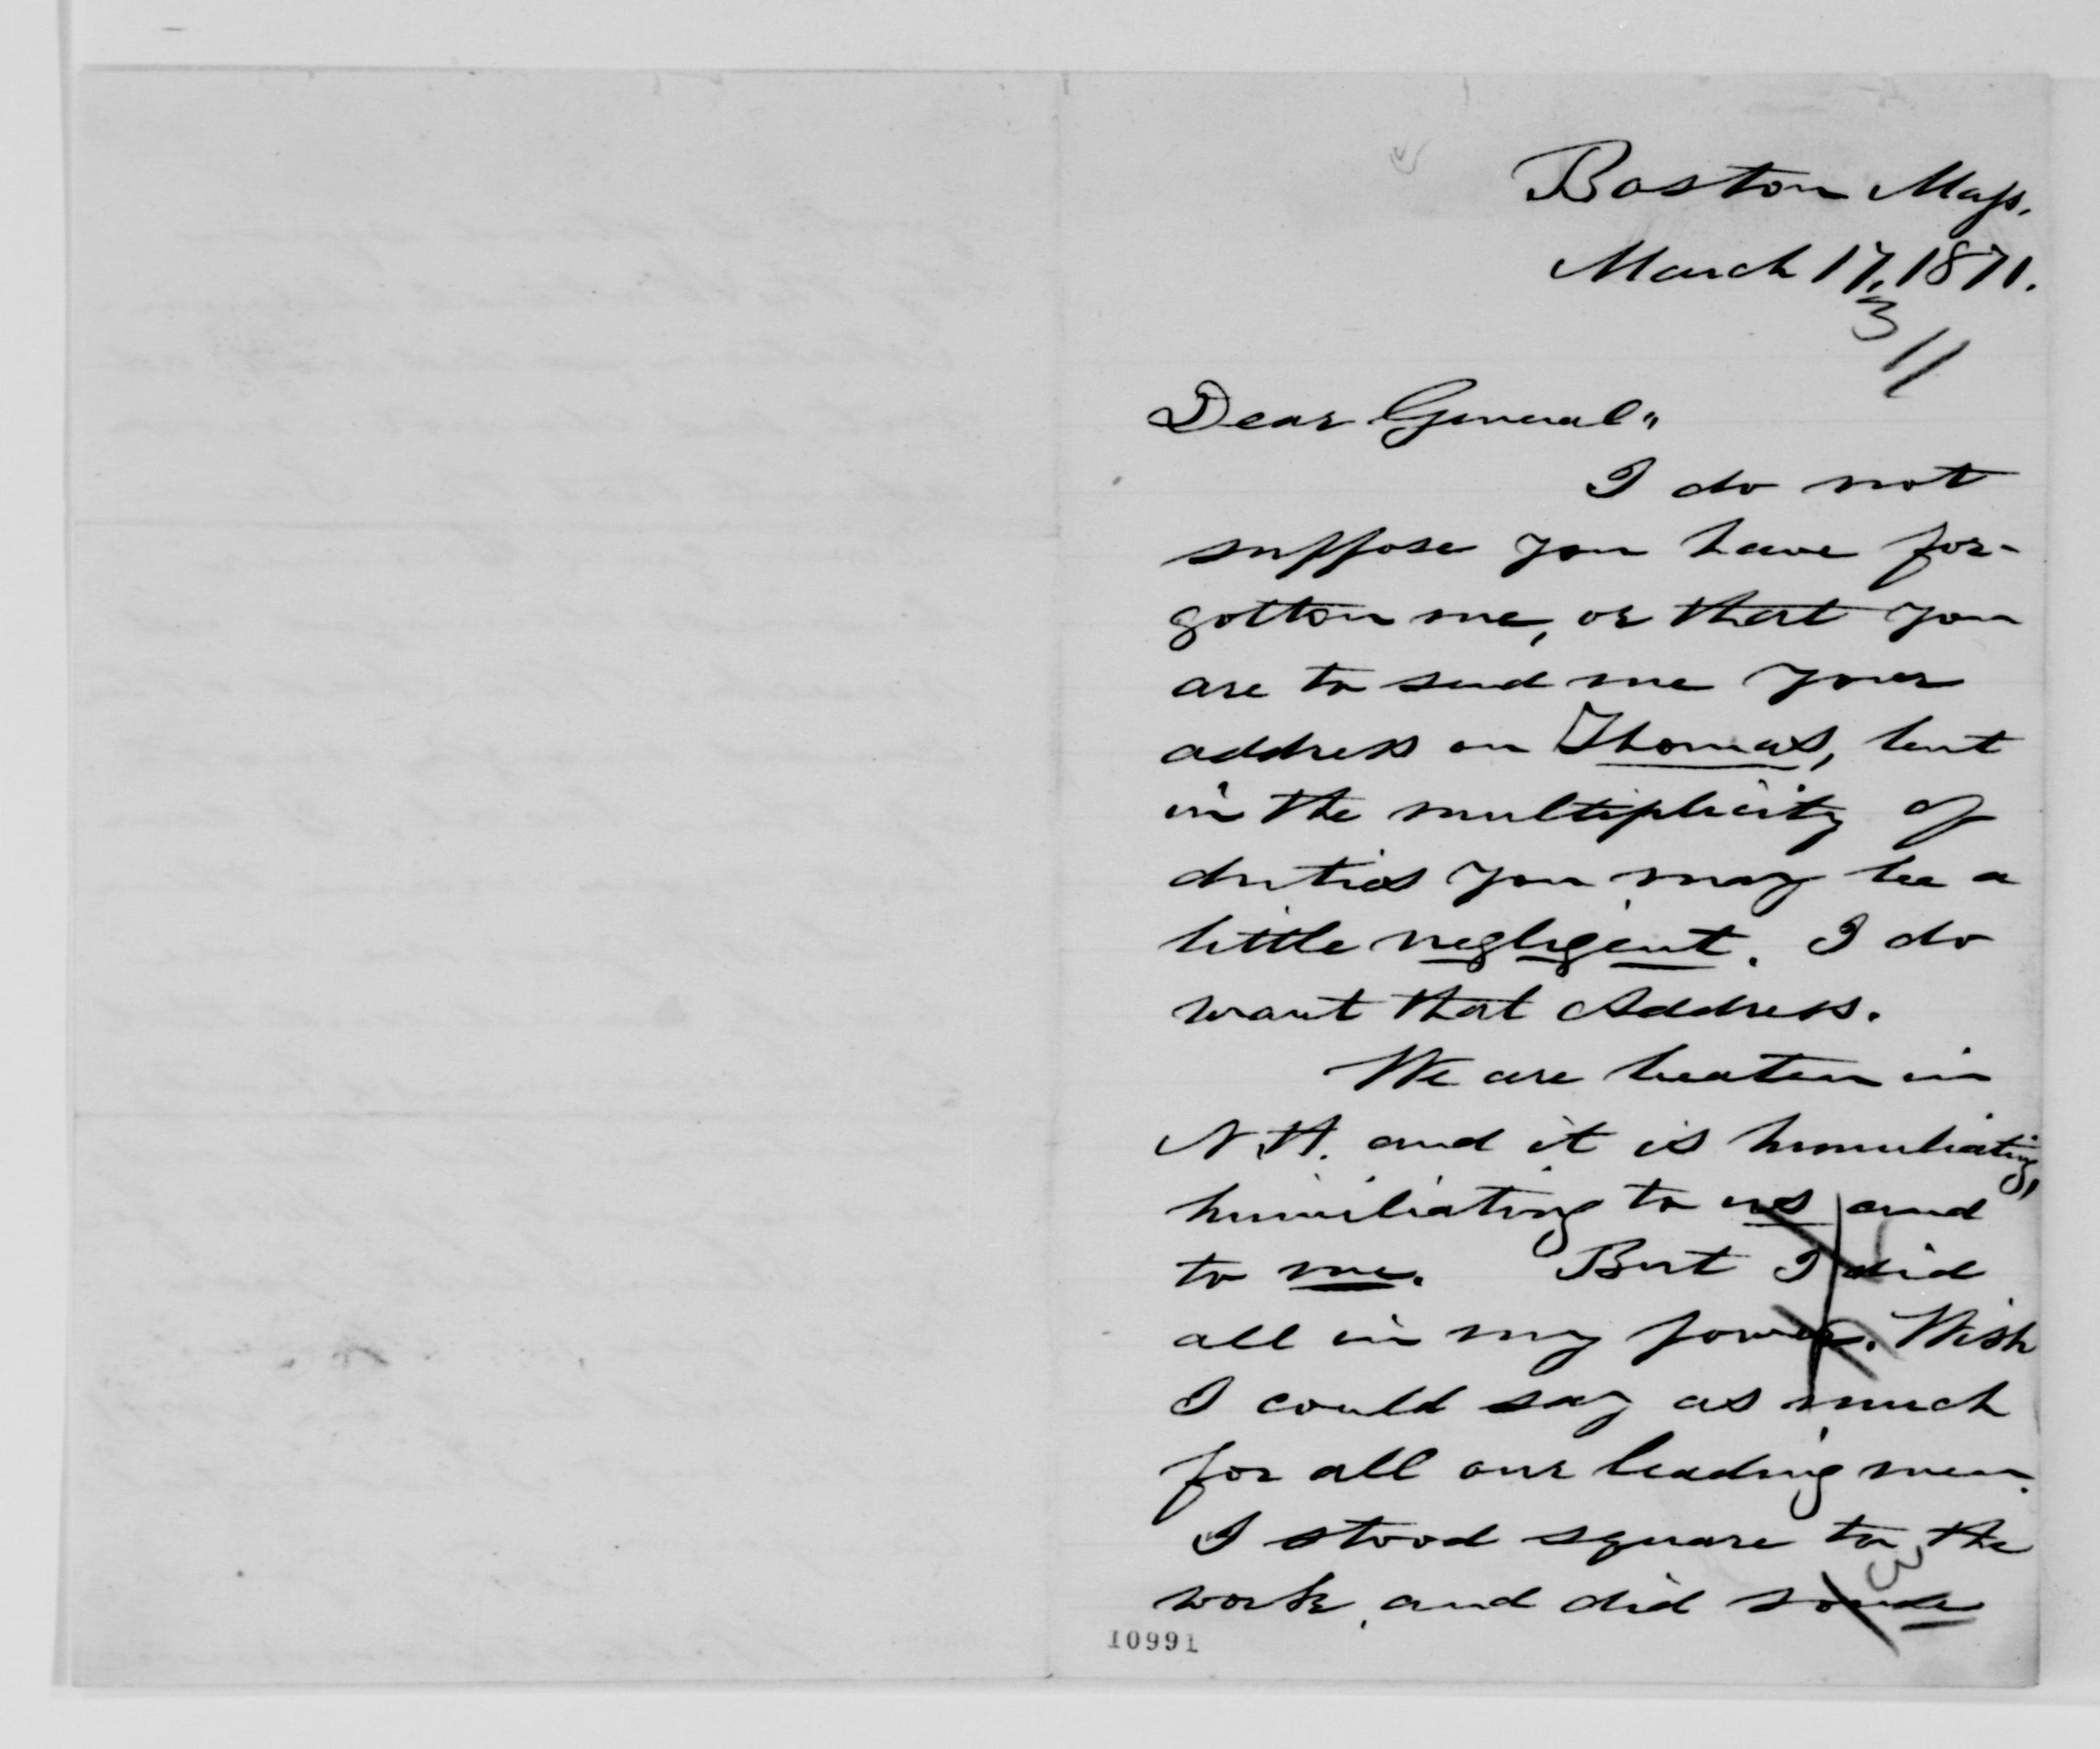 Boston Mass.
March 17, 1871.
3
Dear General,,
I do not
suppose you have for-
gotten me, or that you
are to send me your
address on Thomas, but
in the multiplicity of
duties you may be a
little negligent. I do
want that Address.
We are beaten in
N.H. and it is humuliating,
humiliating to us and
to me. But I did
all in my power. Wish
I could say as much
for all our leading men.
I stood square to the
work, and did
10991